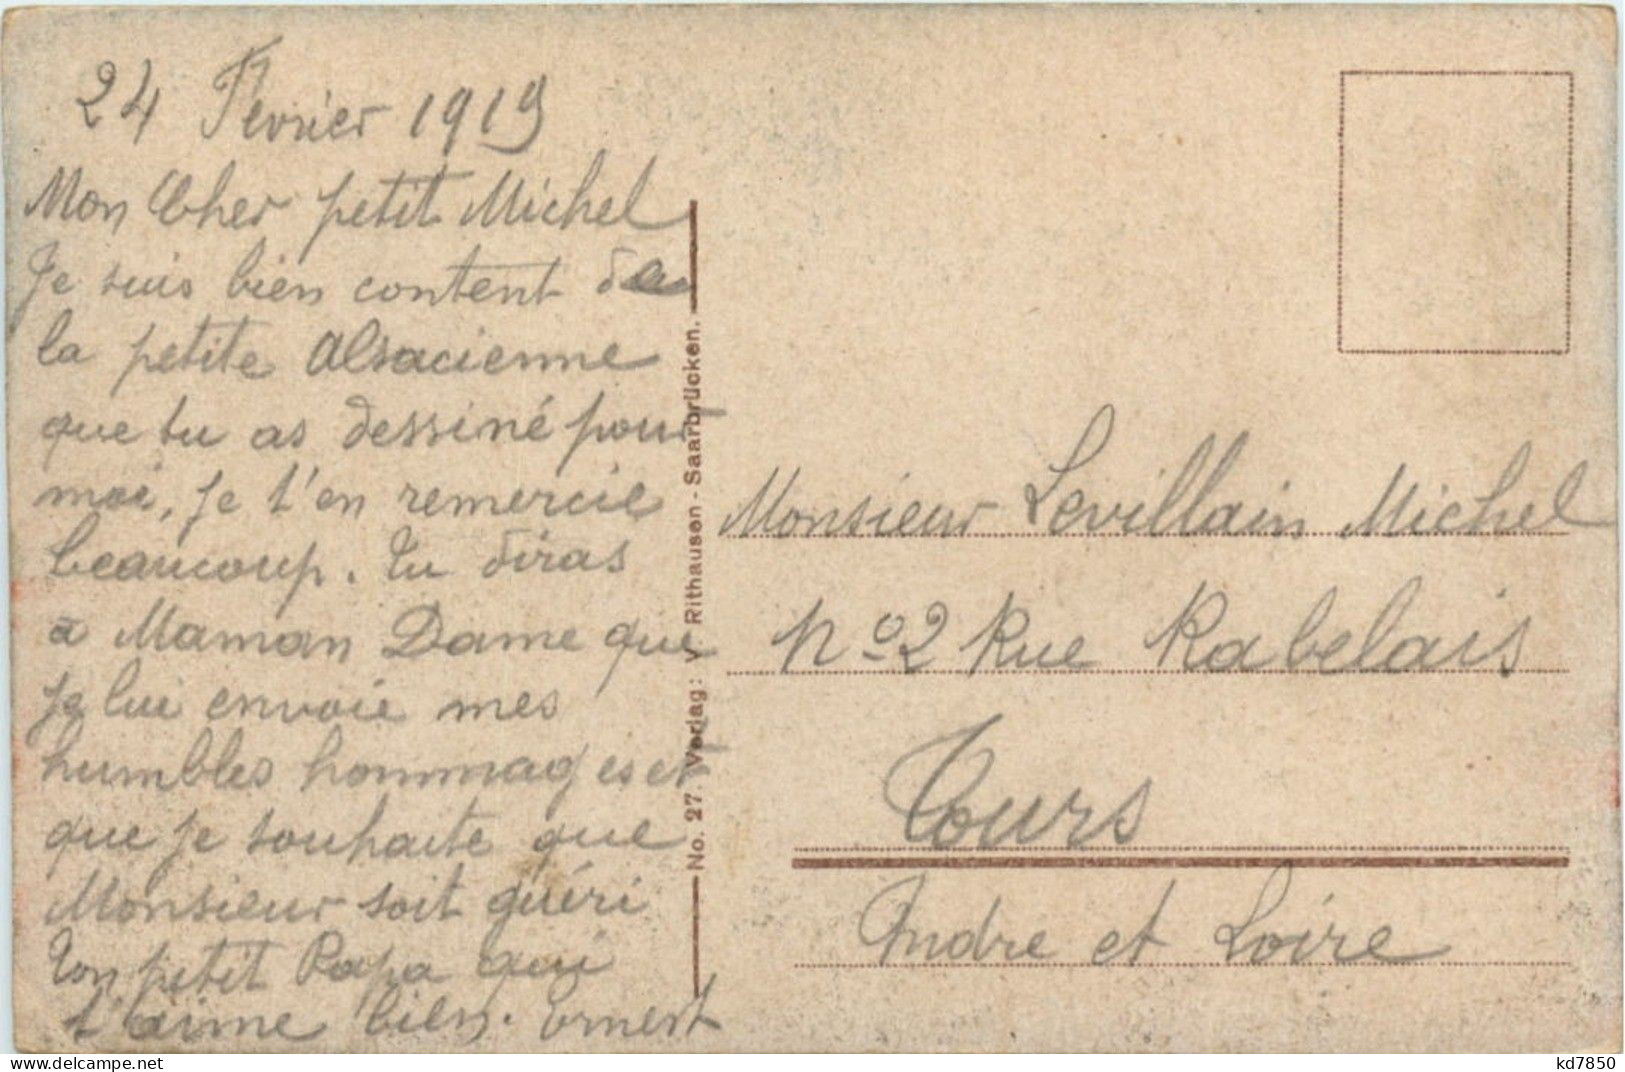 24 Fevrier 1919
Mon Cher petit Michel
Je suis bien content de
la petite Alsacienne
que tu as dessiné pour
moi, je t'en remercie
beaucoup. Tu diras
a Maman Dame que
je lui envoie mes
humbles hommages et
que je souhaite que
Monsieur soit guéri
Ton petit Papa qui
t'aime bien. Ernest
No. 27. Verlag: V. Rithausen - Saarbrücken.
Monsieur Levillain Michel
No 2 Rue Rabelais
Tours
Indre et Loire
the-best-of-stamps-and-coins
kd7850